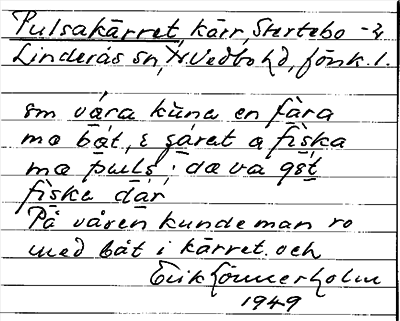 Pulsakärret, kärr, Stertebo - 2
Linderås sn, N Vedbo hd, Jönk. l.
əm våra kùna en fàra
mæ båt, å sáret a fìska
mæ puls; dæ va gɷt
fìska där,
På våren kunde man ro
med båt i kärret och
Erik Lönnerholm
1949